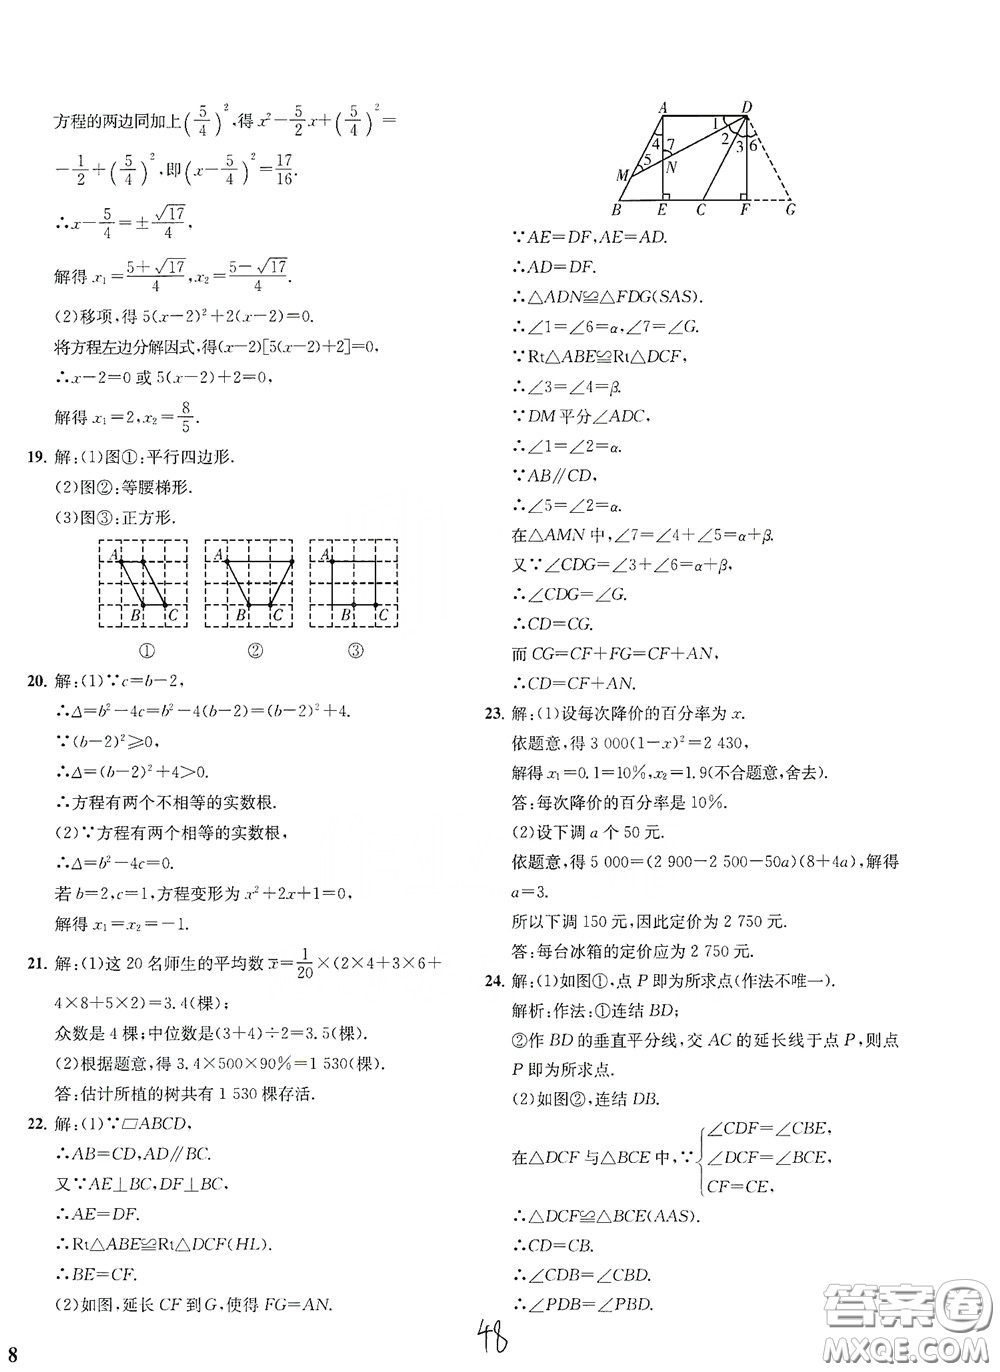 方程的两边同加上(5/4)²,得 x²-5/2x+(5/4)²=
-1/2+(5/4)²,即(x-5/4)²=17/16.
∴x-5/4=±√17/4,
解得 x₁=(5+√17)/4,x₂=(5-√17)/4.
(2)移项,得 5(x-2)²+2(x-2)=0.
将方程左边分解因式,得(x-2)[5(x-2)+2]=0,
∴x-2=0 或 5(x-2)+2=0,
解得 x₁=2,x₂=8/5.
19. 解:(1)图①:平行四边形.
(2)图②:等腰梯形.
(3)图③:正方形.
A B C A B C A B C
① ② ③
20. 解:(1)∵c=b-2,
∴Δ=b²-4c=b²-4(b-2)=(b-2)²+4.
∵(b-2)²≥0,
∴Δ=(b-2)²+4>0.
∴方程有两个不相等的实数根.
(2)∵方程有两个相等的实数根,
∴Δ=b²-4c=0.
若 b=2,c=1,方程变形为 x²+2x+1=0,
解得 x₁=x₂=-1.
21. 解:(1)这 20 名师生的平均数x̄=1/20×(2×4+3×6+
4×8+5×2)=3.4(棵);
众数是 4 棵;中位数是(3+4)÷2=3.5(棵).
(2)根据题意,得 3.4×500×90%=1 530(棵).
答:估计所植的树共有 1 530 棵存活.
22. 解:(1)∵▱ABCD,
∴AB=CD,AD∥BC.
又∵AE⊥BC,DF⊥BC,
∴AE=DF.
∴Rt△ABE≌Rt△DCF(HL).
∴BE=CF.
(2)如图,延长 CF 到 G,使得 FG=AN.
A D
1 2 3 6
4 7
5 N
M
B E C F G
∵AE=DF,AE=AD.
∴AD=DF.
∴△ADN≌△FDG(SAS).
∴∠1=∠6=α,∠7=∠G.
∵Rt△ABE≌Rt△DCF,
∴∠3=∠4=β.
∵DM 平分∠ADC,
∴∠1=∠2=α.
∵AB∥CD,
∴∠5=∠2=α.
在△AMN 中,∠7=∠4+∠5=α+β.
又∵∠CDG=∠3+∠6=α+β,
∴∠CDG=∠G.
∴CD=CG.
而 CG=CF+FG=CF+AN,
∴CD=CF+AN.
23. 解:(1)设每次降价的百分率为 x.
依题意,得 3 000(1-x)²=2 430,
解得 x₁=0.1=10%,x₂=1.9(不合题意,舍去).
答:每次降价的百分率是 10%.
(2)设下调 a 个 50 元.
依题意,得 5 000=(2 900-2 500-50a)(8+4a),解得
a=3.
所以下调 150 元,因此定价为 2 750 元.
答:每台冰箱的定价应为 2 750 元.
24. 解:(1)如图①,点 P 即为所求点(作法不唯一).
解析:作法:①连结 BD;
②作 BD 的垂直平分线,交 AC 的延长线于点 P,则点
P 即为所求点.
(2)如图②,连结 DB.
在△DCF 与△BCE 中,∵{∠CDF=∠CBE,
∠DCF=∠BCE,
CF=CE,
∴△DCF≌△BCE(AAS).
∴CD=CB.
∴∠CDB=∠CBD.
∴∠PDB=∠PBD.
8
48
答案圈
MXQE.COM